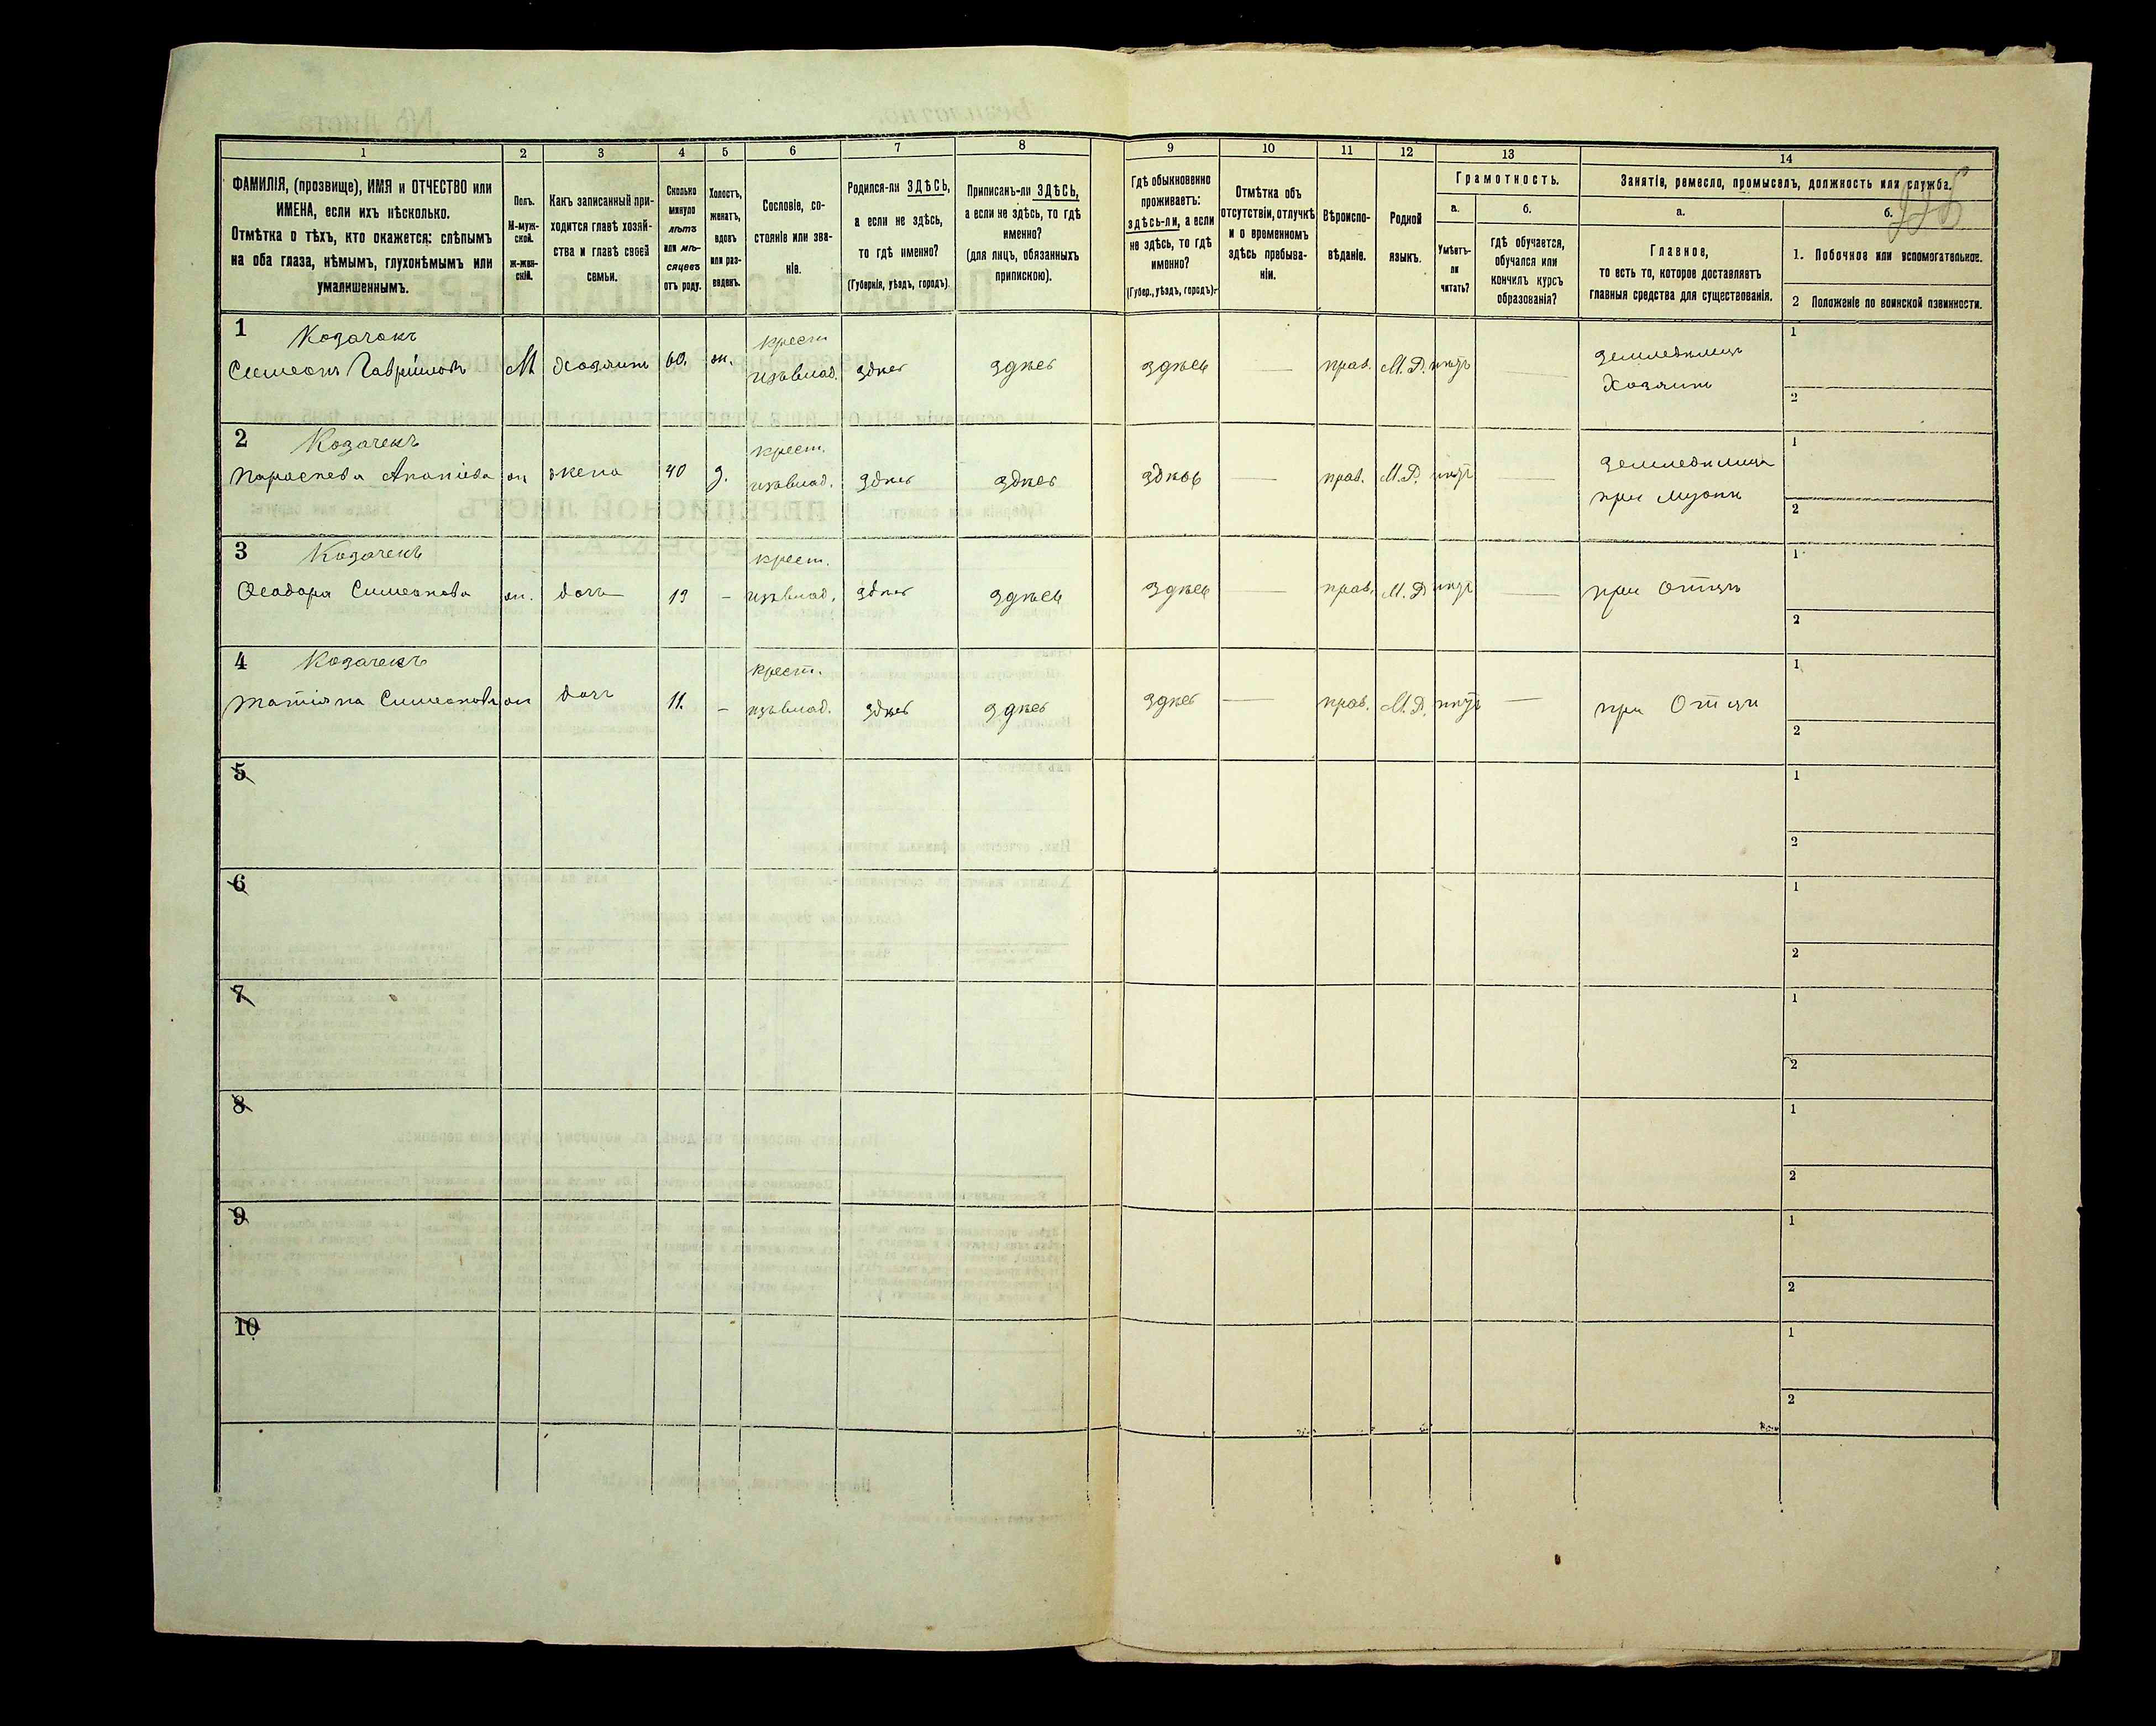 1 2 3 4 5 6 7 8 9 10 11 12 13 14
ФАМИЛІЯ, (прозвище), ИМЯ и ОТЧЕСТВО или
ИМЕНА, если ихъ нѣсколько.
Отмѣтка о тѣхъ, кто окажется: слѣпымъ
на оба глаза, нѣмымъ, глухонѣмымъ или
умалишеннымъ.
Полъ.
М-муж-
ской.
ж-жен-
скій.
Какъ записанный при-
ходится главѣ хозяй-
ства и главѣ своей
семьи.
Сколько
минуло
лѣтъ
или мѣ-
сяцевъ
отъ роду.
Холостъ,
женатъ,
вдовъ
или раз-
веденъ.
Сословіе, со-
стояніе или зва-
ніе.
Родился-ли ЗДѢСЬ,
а если не здѣсь,
то гдѣ именно?
(Губернія, уѣздъ, городъ)
Приписанъ-ли ЗДѢСЬ,
а если не здѣсь, то гдѣ
именно?
(для лицъ, обязанныхъ
припискою).
Гдѣ обыкновенно
проживаетъ:
здѣсь-ли, а если
не здѣсь, то гдѣ
именно?
(Губер., уѣздъ, городъ).
Отмѣтка объ
отсутствіи, отлучкѣ
и о временномъ
здѣсь пребыва-
ніи.
Вѣроиспо-
вѣданіе.
Родной
языкъ.
Грамотность.
а.
Умѣетъ-
ли
читать?
б.
гдѣ обучается,
обучался или
кончилъ курсъ
образованія?
Занятіе, ремесло, промыселъ, должность или служба.
а.
Главное,
то есть то, которое доставляетъ
главныя средства для существованія.
б.
1. Побочное или вспомогательное.
2 Положеніе по воинской повинности.
1 Козачокъ
Симеонъ Гавриловъ М хозяинъ 60. ж. крест. изъ влад. здѣсь здѣсь здѣсь — прав. М. Р. нѣтъ — земледѣлецъ
Хозяинъ
1
2
2 Козачекъ
Параскева Ананіева ж жена 40 з. крест. изъ влад. здѣсь здѣсь здѣсь — прав. М. Р. нѣтъ — земледѣлица
при мужѣ
1
2
3 Козачекъ
Ѳеодора Симеонова ж. дочь 19 – крест. изъ влад. здѣсь здѣсь здѣсь — прав. М. Р. нѣтъ — при отцѣ
1
2
4 Козачекъ
Татіяна Симеонова ж дочь 11. – крест. изъ влад. здѣсь здѣсь здѣсь — прав. М. Р. нѣтъ — при Отцѣ
1
2
5
1
2
6
1
2
7
1
2
8
1
2
9
1
2
10
1
2